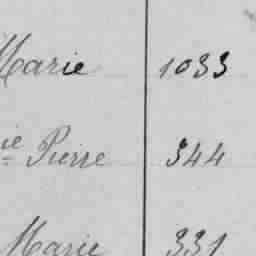 Marie 1033
ie Pierre 344
Marie 331